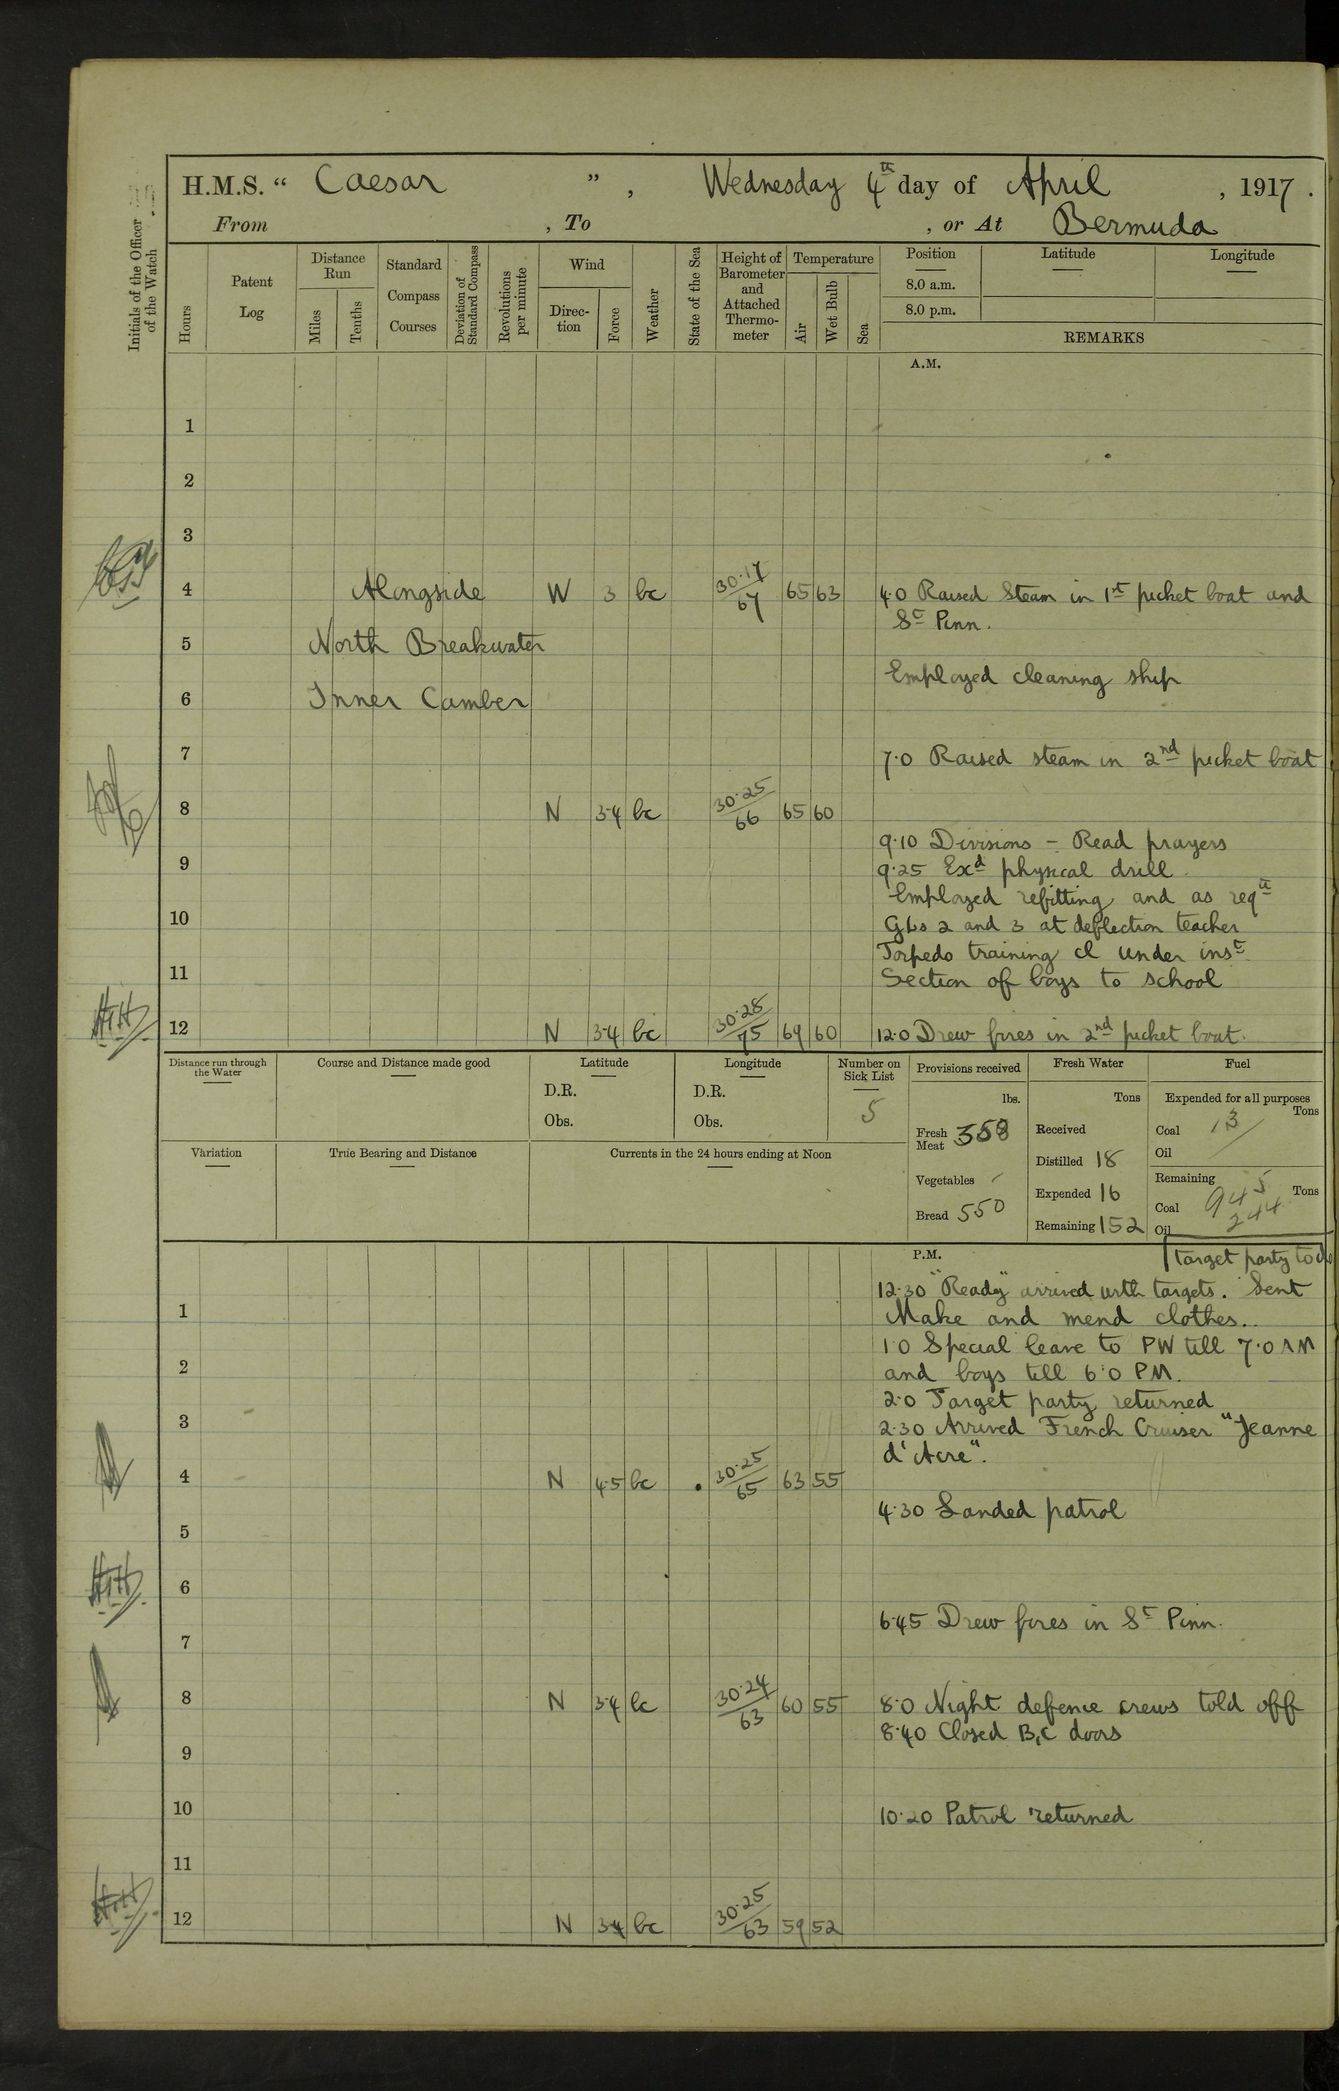 H.M.S. “ Caesar ” , Wednesday 4th day of April , 1917 .
From , To , or At Bermuda
Initials of the Officer of the Watch
Hours
Patent Log
Distance Run
Miles
Tenths
Standard Compass Courses
Deviation of Standard Compass
Revolutions per minute
Wind
Direc-tion
Force
Weather
State of the Sea
Height of Barometer and Attached Thermo-meter
Temperature
Air
Wet Bulb
Sea
Position
8.0 a.m.
8.0 p.m.
Latitude
Longitude
REMARKS
A.M.
1
2
3
4 Alongside W 3 bc 30.17/67 65 63 4.0 Raised Steam in 1st picket boat and
St Pinn.
5 North Breakwater
Employed cleaning ship
6 Inner Camber
7 7.0 Raised steam in 2nd picket boat
8 N 3.4 bc 30.25/66 65 60
9.10 Divisions – Read prayers
9 9.25 Exd physical drill
Employed refitting and as reqte
10 GLs 2 and 3 at deflection teacher
Torpedo training cl under inst.
11 Section of boys to school
12 N 3.4 bc 30.28/75 69 60 12.0 Drew fires in 2nd picket boat.
Distance run through the Water
Course and Distance made good
Latitude
D.R.
Obs.
Longitude
D.R.
Obs.
Number on Sick List
5
Variation
True Bearing and Distance
Currents in the 24 hours ending at Noon
Provisions received
lbs.
Fresh Meat 358
Vegetables
Bread 550
Fresh Water
Tons
Received
Distilled 18
Expended 16
Remaining 152
Fuel
Expended for all purposes
Tons
Coal 13
Oil
Remaining
Tons
Coal 945
Oil 244
P.M. Target party to do
12.30 "Ready" arrived with targets. Sent
1 Make and mend clothes..
1.0 Special leave to PW till 7.0 AM
2 and boys till 6.0 PM.
2.0 Target party returned
3 2.30 Arrived French Cruiser "Jeanne
d'Acre".
4 N 4.5 bc 30.25/65 63 55
4.30 Landed patrol
5
6
6.45 Drew fires in St Pinn.
7
8 N 3.4 bc 30.24/63 60 55 8.0 Night defence crews told off
8.40 Closed B,C doors
9
10 10.20 Patrol returned
11
12 N 3.4 bc 30.25/63 59 52